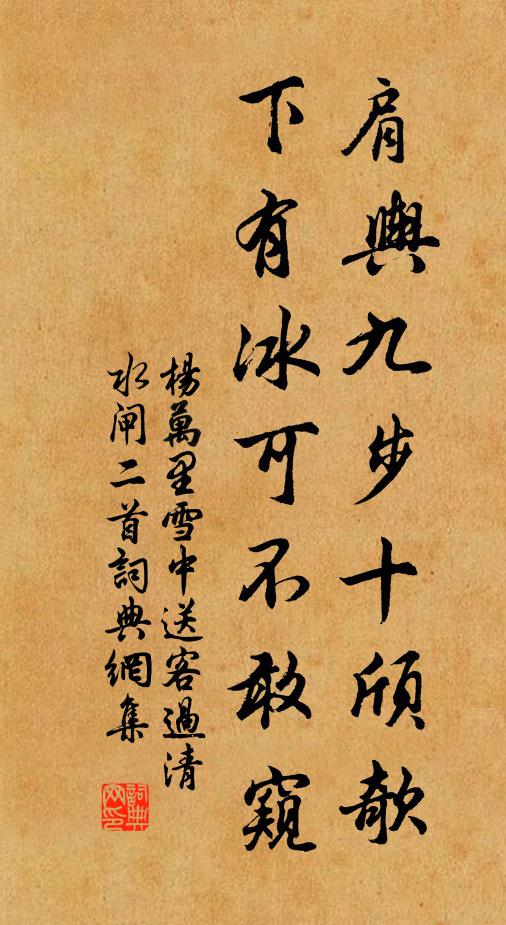 肩輿九步十傾欹
下有冰可不敢窺
楊萬里雪中送客過清
水閘二首詞典網集
詞典
網印